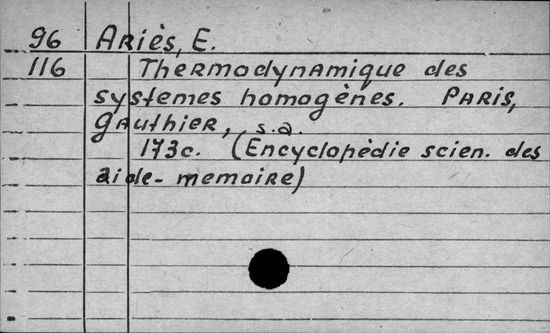 96 Ariès, E.
116 Thermodynamique des
systemes homogènes. Paris,
Gauthier, s.a.
173c. (Encyclopédie scien. des
aide-memoire)